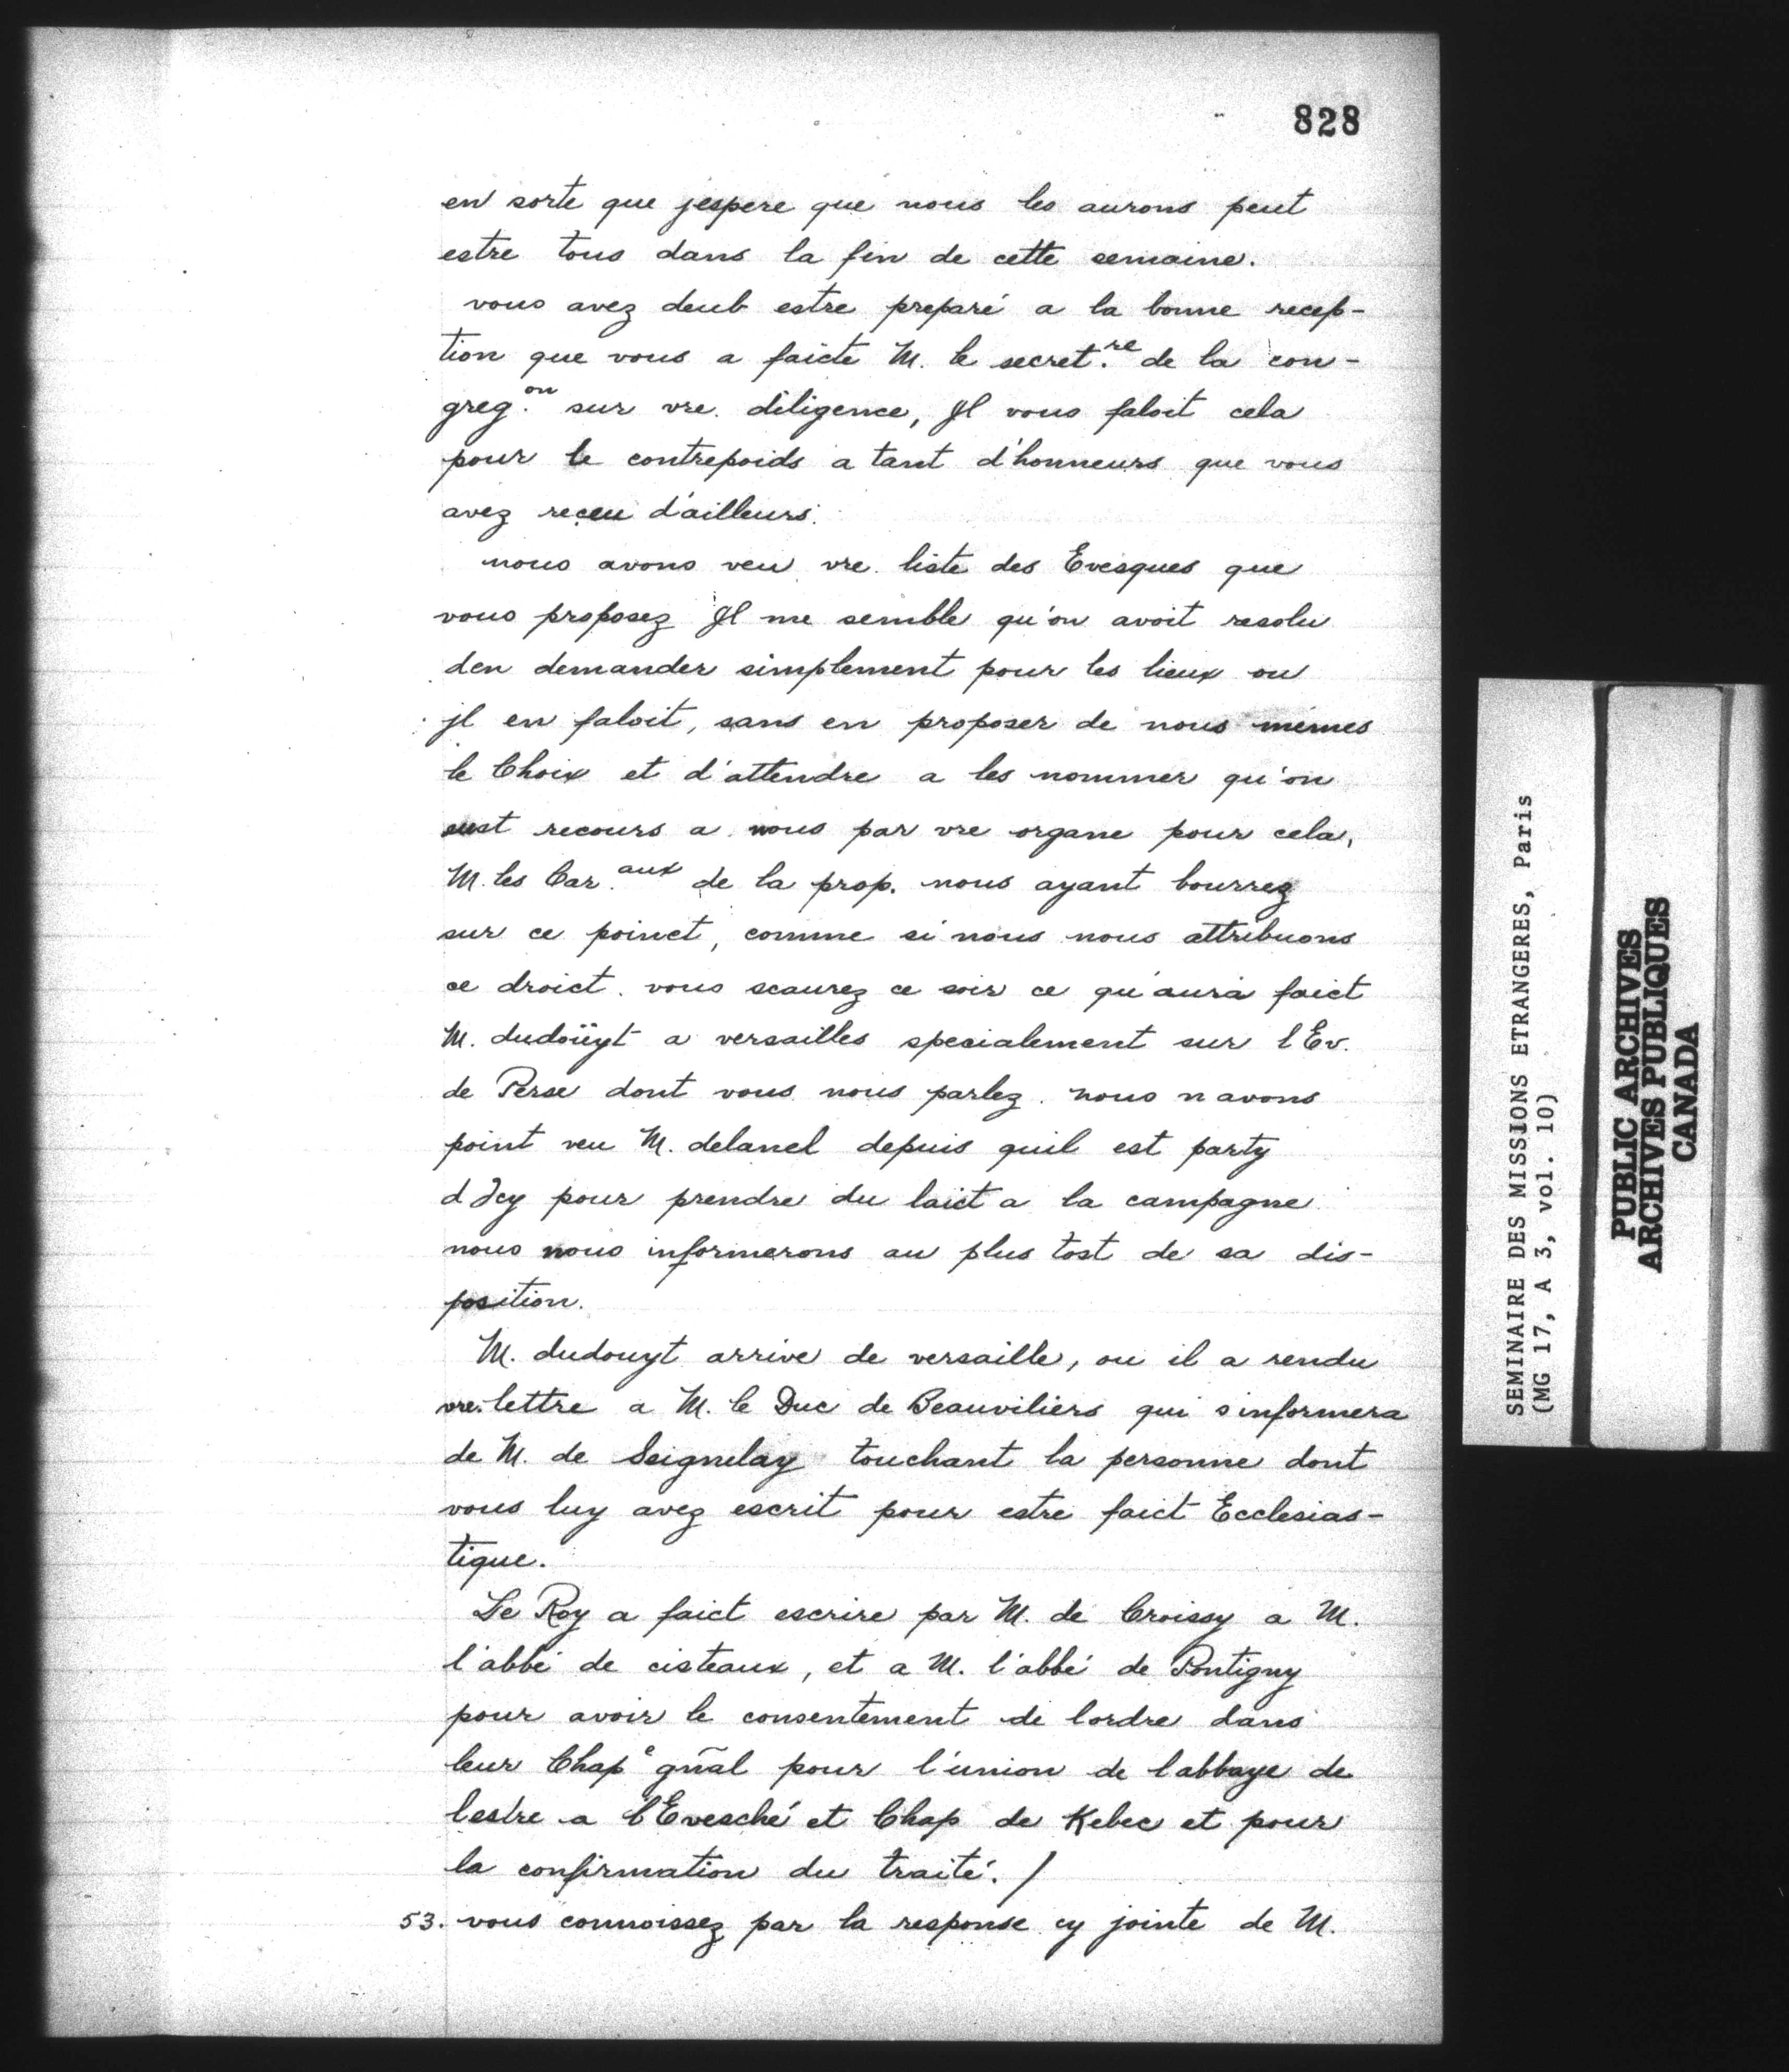 828
en sorte que jespere que nous les aurons peut
estre tous dans la fin de cette semaine.
vous avez deub estre preparé a la bonne recep-
tion que vous a faicte M. le secret.re de la con-
greg.on sur vre. diligence, Jl vous faloit cela
pour le contrepoids a tant d'honneurs que vous
avez receu d'ailleurs.
nous avons veu vre. liste des Evesques que
vous proposez Jl me semble qu'on avoit resolu
den demander simplement pour les lieux ou
jl en faloit, sans en proposer de nous mémes
le Choix et d'attendre a les nommer qu'on
eust recours a nous par vre organe pour cela,
M. les Car.aux de la prop. nous ayant bourrez
sur ce poinct, comme si nous nous attribuons
ce droict. vous scaurez ce soir ce qu'aura faict
M. dudoüyt a versailles specialement sur l Ev.
de Perse dont vous nous parlez. nous n avons
point veu M. delanel depuis quil est party
d Jcy pour prendre du laict a la campagne
nous nous informerons au plus tost de sa dis-
position.
M. dudouyt arrive de versaille, ou il a rendu
vre. lettre a M. le Duc de Beauviliers qui s informera
de M. de Seignelay touchant la personne dont
vous luy avez escrit pour estre faict Ecclesias-
tique.
Le Roy a faict escrire par M. de Croissy a M.
l'abbé de cisteaux, et a M. l'abbé de Pontigny
pour avoir le consentement de lordre dans
leur Chap e gñal pour l'union de labbaye de
lestre a l'Evesché et Chap de Kebec et pour
la confirmation du traité. /
53. vous connoissez par la response cy jointe de M.
SEMINAIRE DES MISSIONS ETRANGERES, Paris
(MG 17, A 3, vol. 10)
PUBLIC ARCHIVES
ARCHIVES PUBLIQUES
CANADA